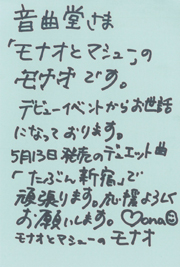 音曲堂さま
「モナオとマシュー」の
モナオです。
デビューイベントからお世話
になっております。
5月13日発売のデュエット曲
「たぶん新宿」で
頑張ります。応援よろしく
お願いします。♡mona
モナオとマシューのモナオ